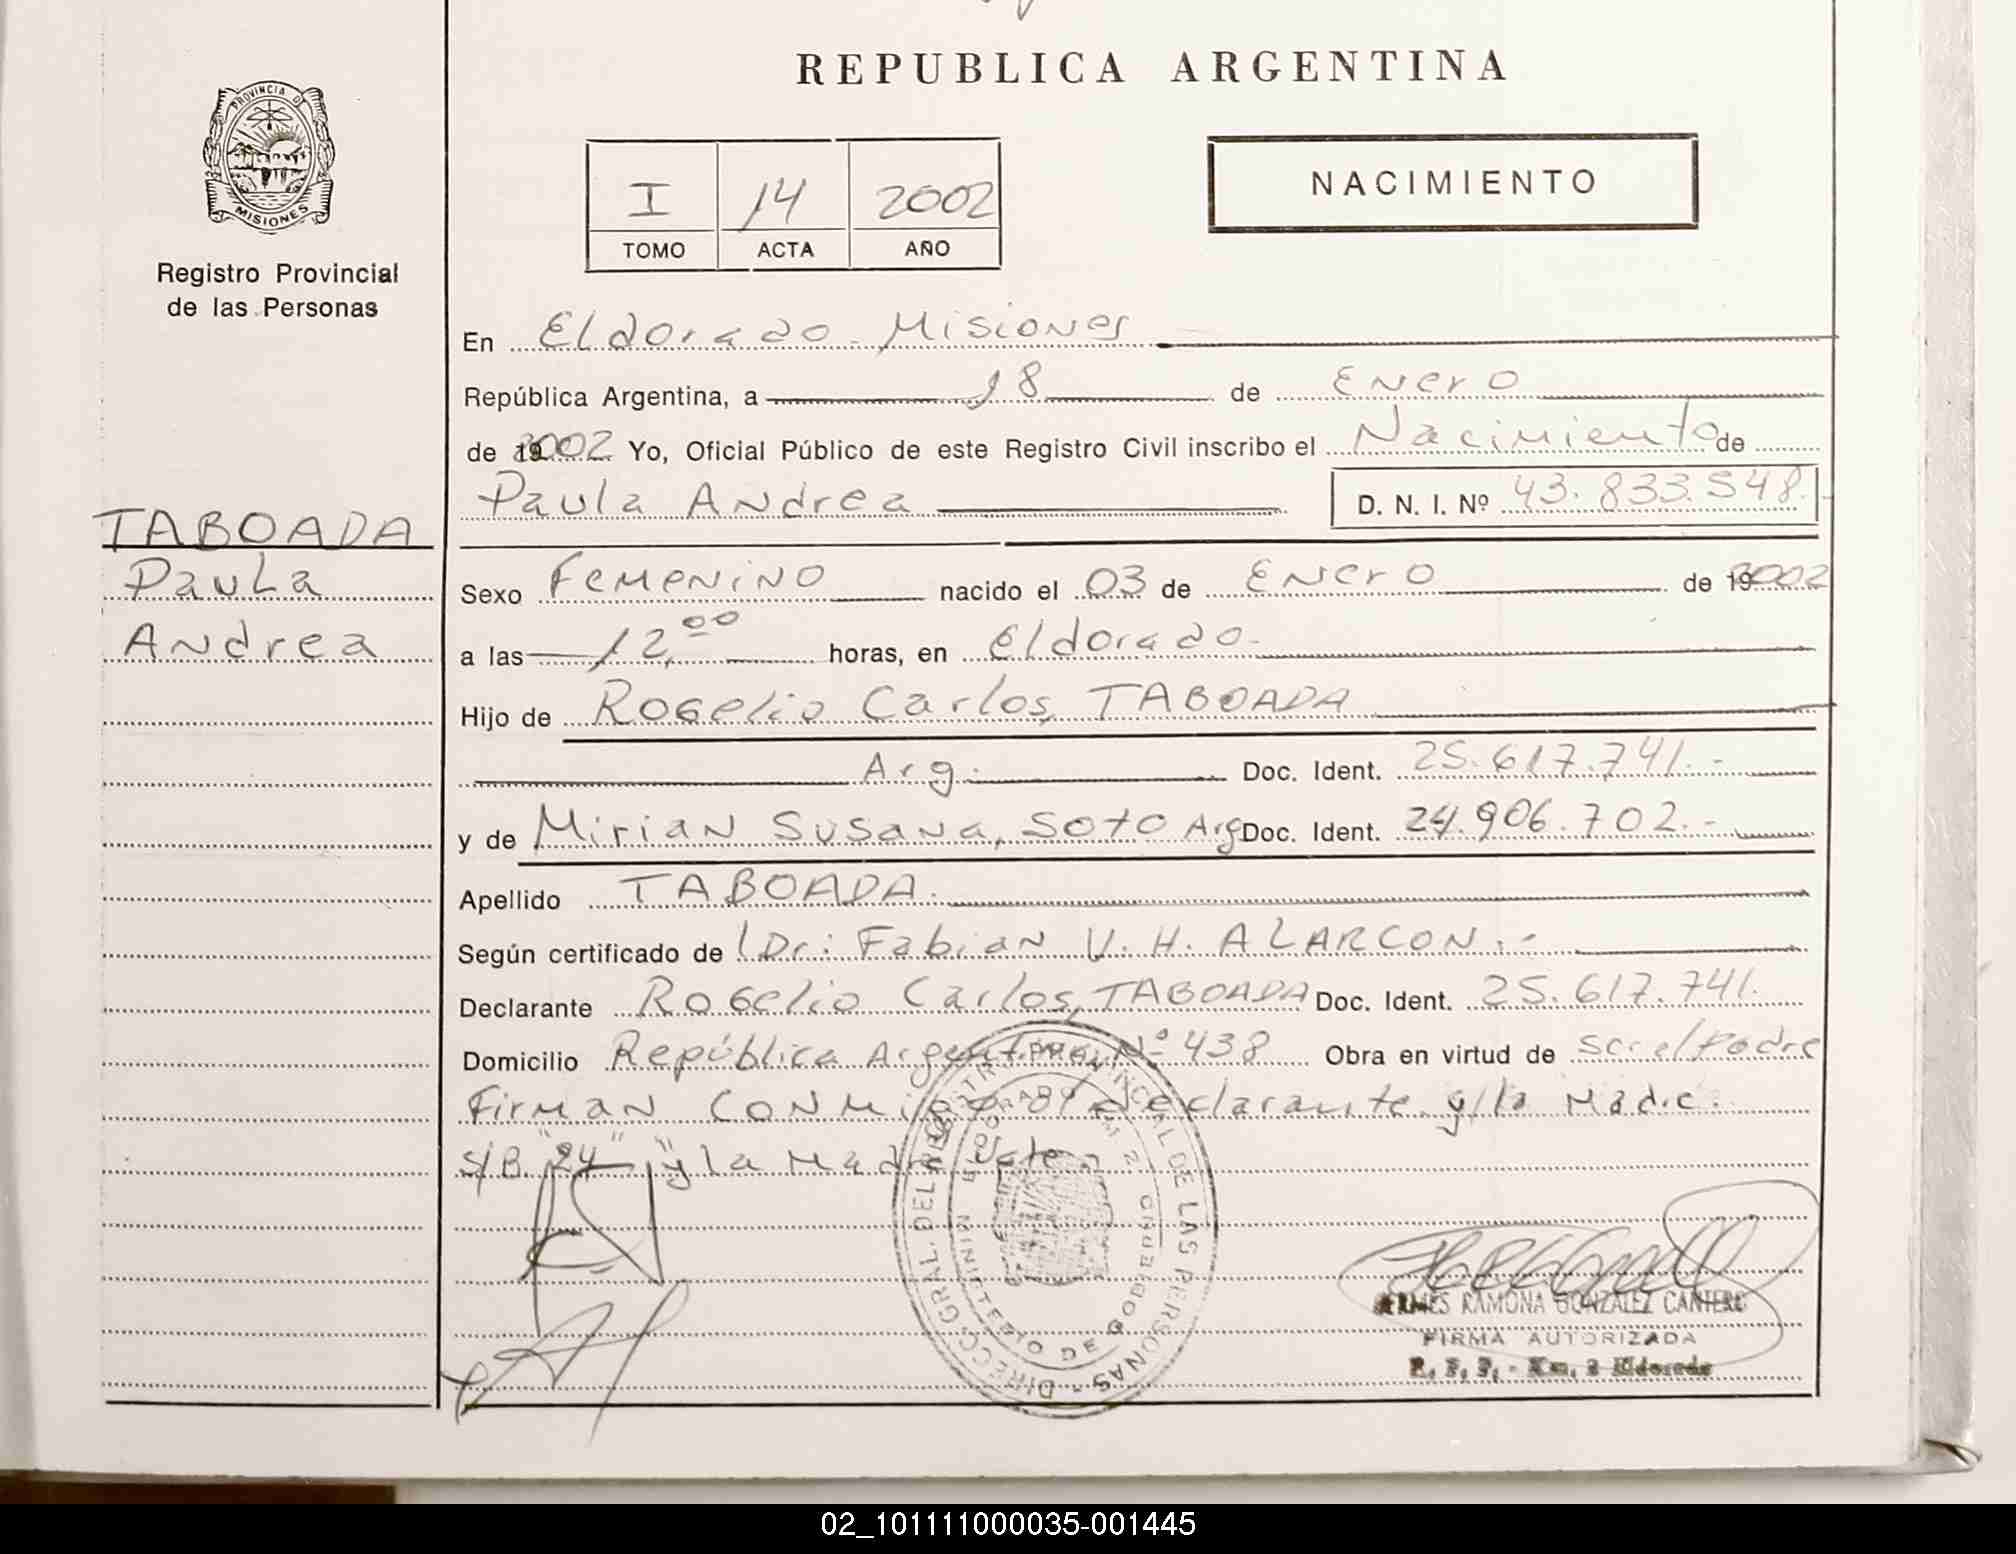 REPUBLICA ARGENTINA
PROVINCIA DE
MISIONES
Registro Provincial
de las Personas
I 14 2002
TOMO ACTA AÑO
NACIMIENTO
En Eldorado - Misiones
República Argentina, a 18 de Enero
de 2002 Yo, Oficial Público de este Registro Civil inscribo el Nacimiento de
Paula Andrea D. N. I. Nº 43.833.548.
TABOADA
Paula
Andrea
Sexo Femenino nacido el 03 de Enero de 2002
a las 12,00 horas, en Eldorado.
Hijo de Rogelio Carlos, TABOADA
Arg. Doc. Ident. 25.617.741.-
y de Mirian Susana, Soto Arg Doc. Ident. 24.906.702.-
Apellido TABOADA.
Según certificado de Dr: Fabian V. H. ALARCON.-
Declarante Rogelio Carlos, TABOADA Doc. Ident. 25.617.741.
Domicilio República Argentina Nº 438 Obra en virtud de ser el Padre
Firman conmigo el declarante y/la Madre.
S/B. "24" "y la Madre" Vale.-
DIRECC. GRAL. DEL REGISTRO PROVINCIAL DE LAS PERSONAS -
MINISTERIO DE GOBIERNO
RAMONA GONZALEZ CANTERO
FIRMA AUTORIZADA
R. P. P. - Km. 2 Eldorado
02_101111000035-001445